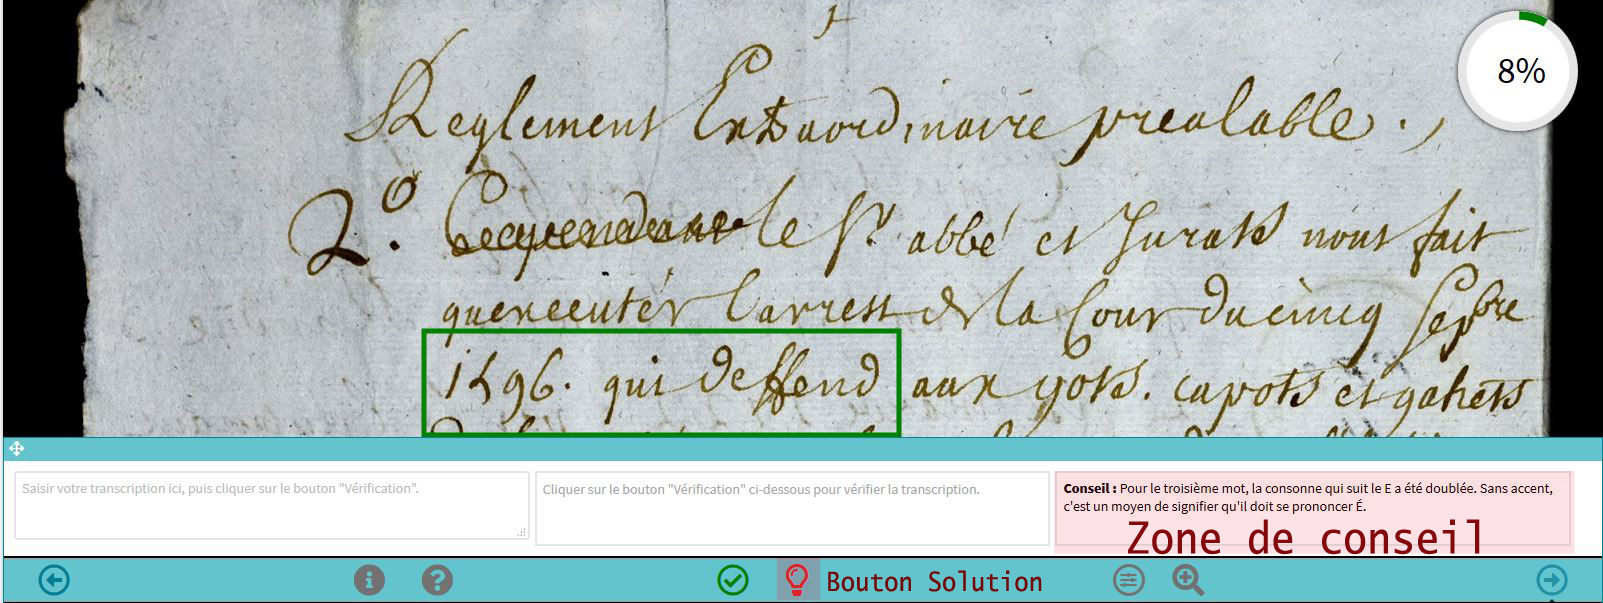 Reglement Extraordinaire prealable .,
8%
2.º Cependant le Sr abbé et Jurats nont fait
quexecuter l'arrest de la Cour du cinq Sepbre
1596. qui deffend aux gots. capots et gahets
Saisir votre transcription ici, puis cliquer sur le bouton "Vérification".
Cliquer sur le bouton "Vérification" ci-dessous pour vérifier la transcription.
Conseil : Pour le troisième mot, la consonne qui suit le E a été doublée. Sans accent,
c'est un moyen de signifier qu'il doit se prononcer É.
Zone de conseil
Bouton Solution